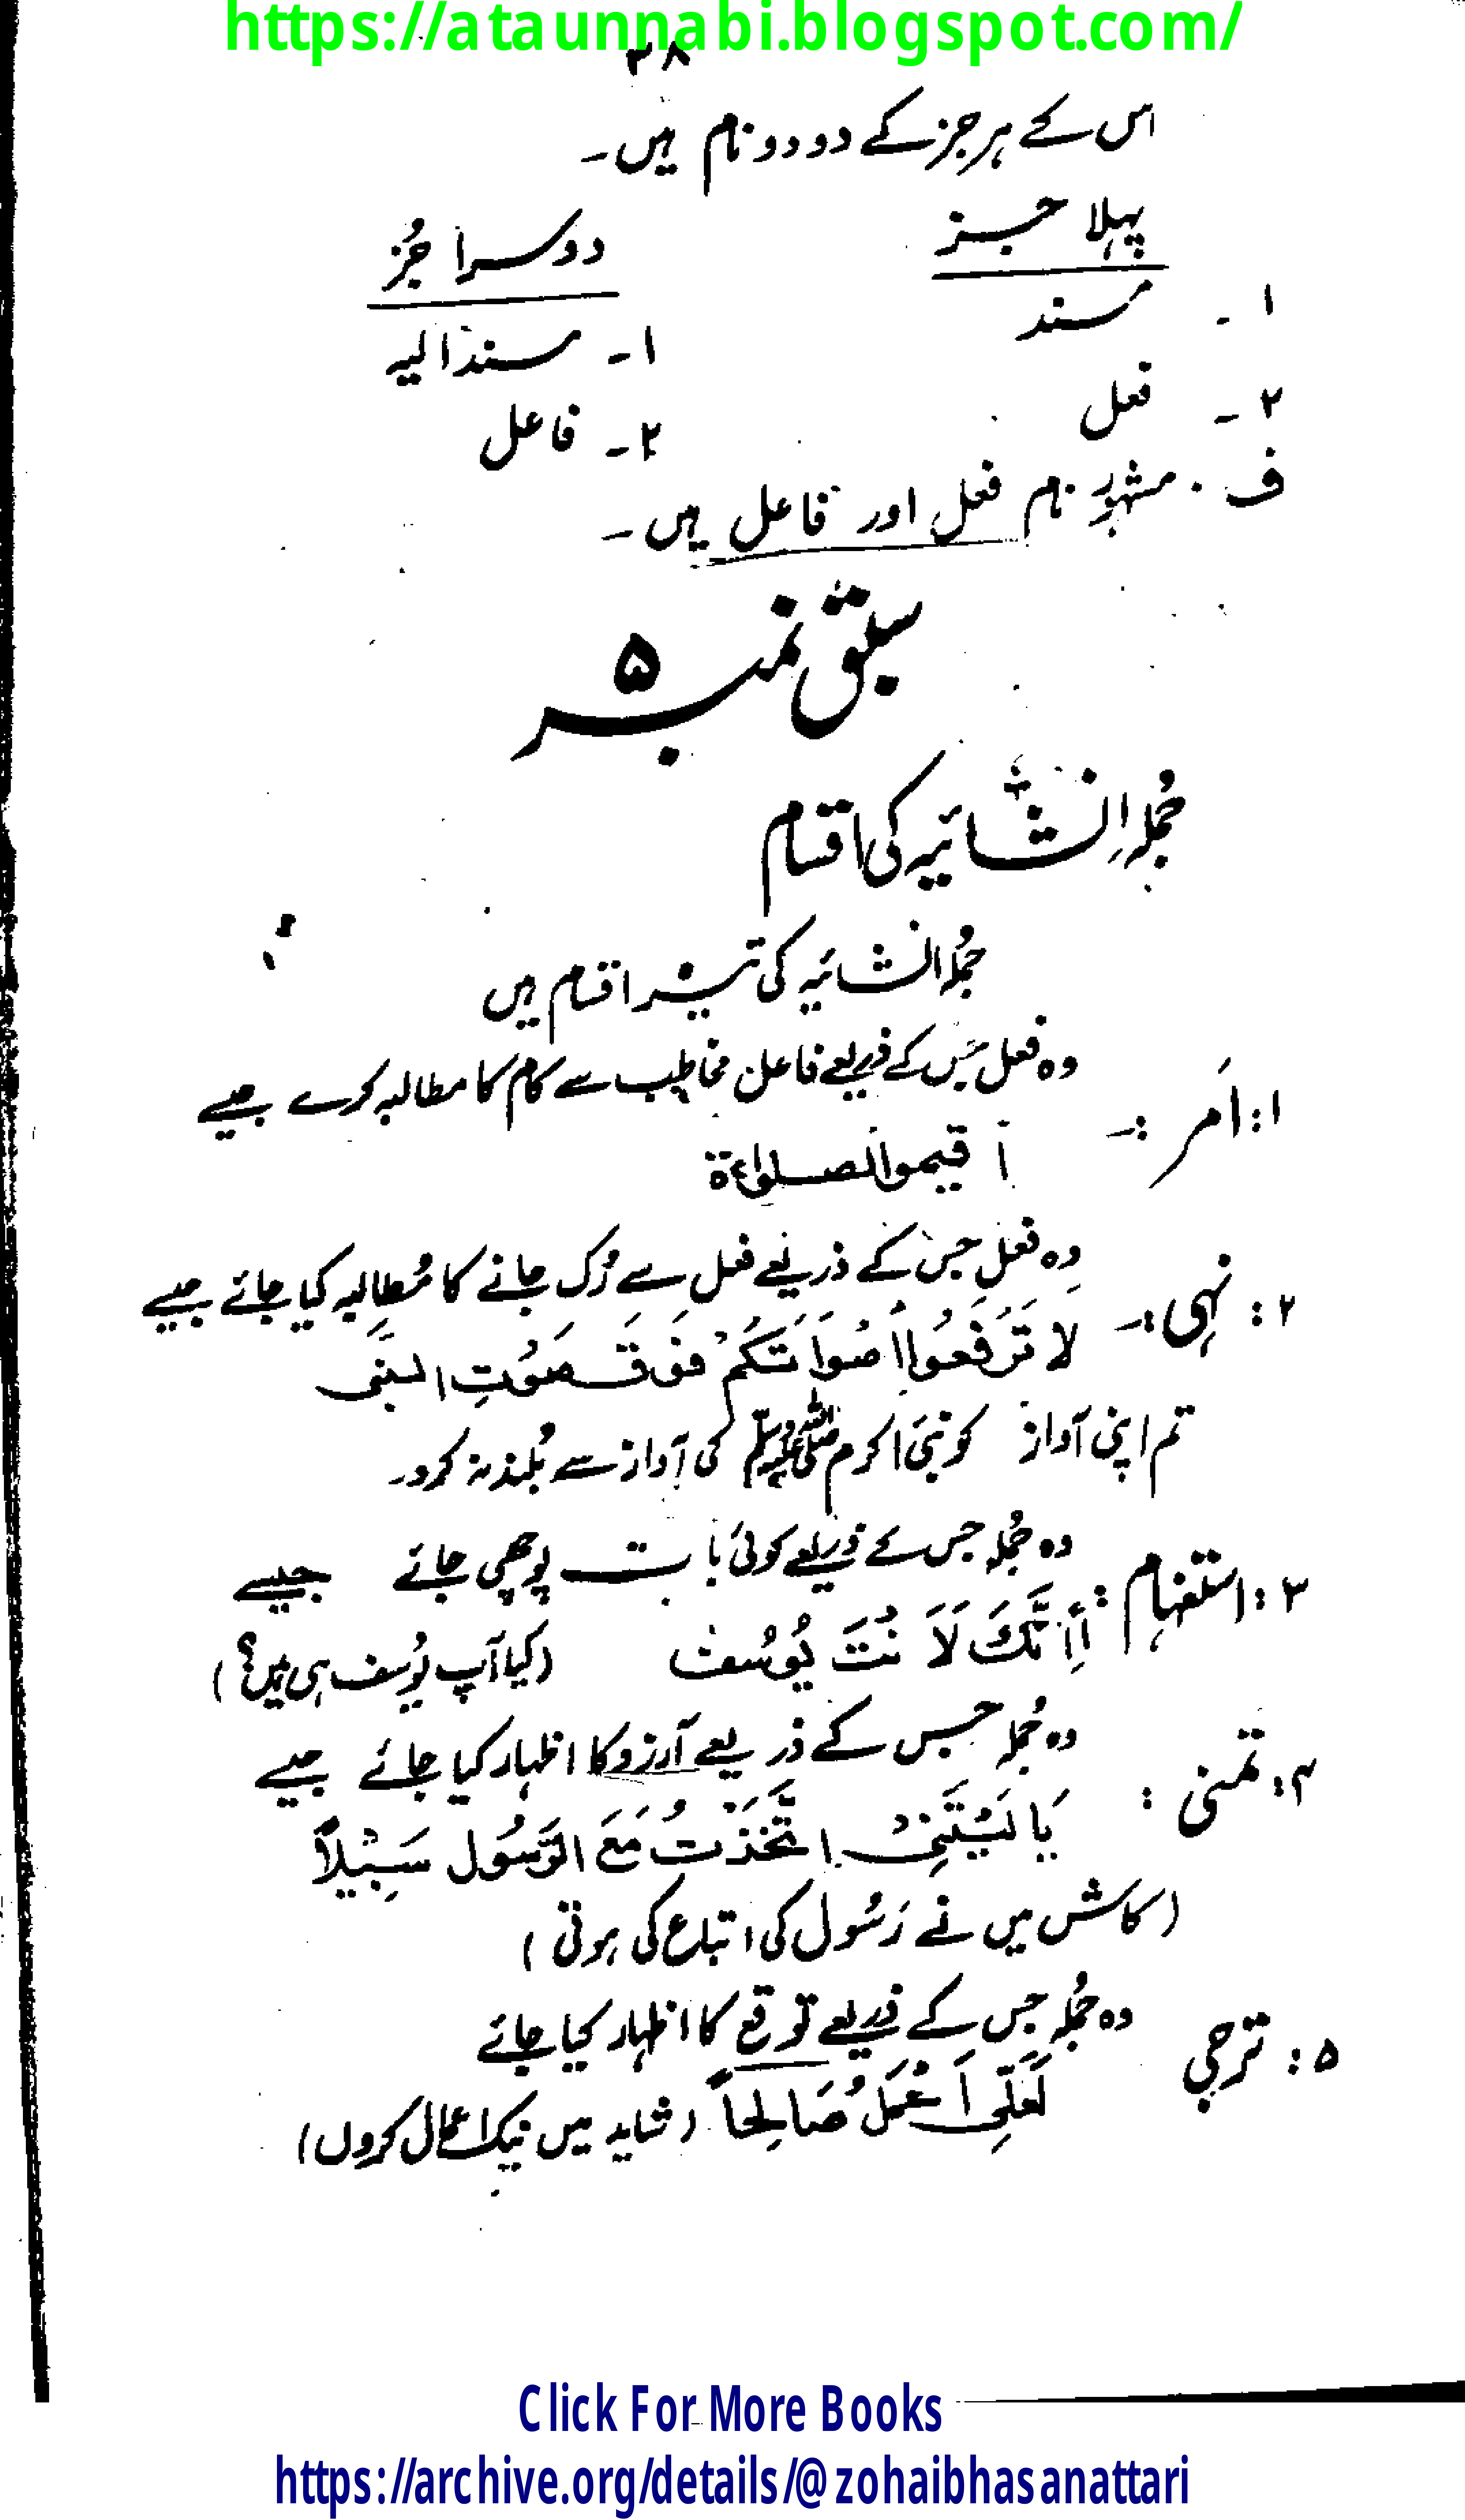 https://ataunnabi.blogspot.com/
۳۸
اس کے ہر جز کے دو دو نام ہیں۔
پہلا جز دوسرا جُز
۱۔ مسند ۱۔ مسند الیہ
۲۔ فعل ۲۔ فاعل
ف۔ مشہور نام فعل اور فاعل ہیں۔
سبق نمبر ۵
جُملہ اِنشائیہ کی اقسام
جُملہ انشائیہ کی تیرہ اقسام ہیں
۱: اَمر :۔ وہ فعل جس کے ذریعے فاعل مخاطب سے کام کا مطالبہ کرے جیسے
أقيموا الصلواة
۲: نہی :۔ وہ فعل جس کے ذریعے فعل سے رُک جانے کا مُطالبہ کیا جائے جیسے
لَا تَرْفَعُوا اَصْوَاتَكُمْ فَوْقَ صَوْتِ النَّبِى
تم اپنی آواز کو نبی اکرم ﷺ کی آواز سے بُلند نہ کرو۔
۳: استفہام : وہ جُملہ جس کے ذریعے کوئی بات پوچھی جائے جیسے
أَإِنَّكَ لَأَنْتَ يُوْسُف (کیا آپ یُوسف ہی ہیں؟)
۴: تمنی : وہ جُملہ جس کے ذریعے آرزو کا اظہار کیا جائے جیسے
يَا لَيْتَنِىْ اتَّخَذْتُ مَعَ الرَّسُول سَبِيْلاً
(کاش میں نے رَسُول کی اتباع کی ہوتی)
۵: ترجی وہ جُملہ جس کے ذریعے توقع کا اظہار کیا جائے
لَعَلِّى اَعْمَلُ صَالِحاً (شاید میں نیک اعمال کروں)
Click For More Books
https://archive.org/details/@zohaibhasanattari